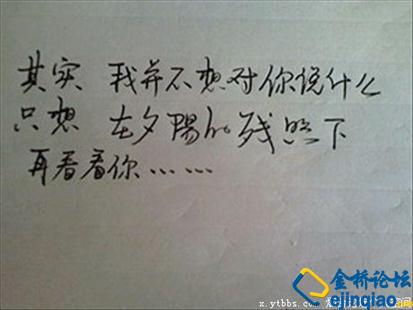 其实 我并不想对你说什么
只想 在夕陽的残照下
再看看你……
金桥论坛
ejinqiao
x.ytbbs.com